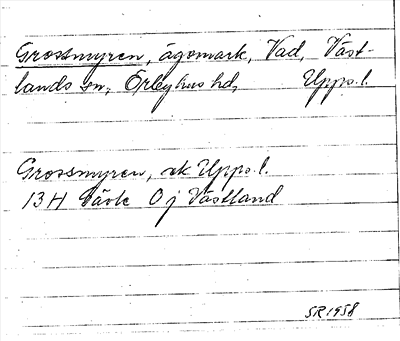 Grossmyren, ägomark, Vad, Väst-
lands sn, Örbyhus hd, Upps. l.
Grossmyren, ek Upps. l.
13H Gävle 0j Västland
SR 1958